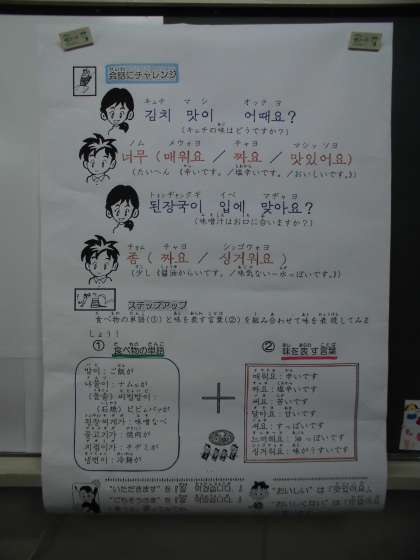 会話にチャレンジ
キムチ マシ オッテヨ
김치 맛이 어때요?
(キムチの味はどうですか?)
ノム メウォヨ チャヨ マシッソヨ
너무 (매워요 / 짜요 / 맛있어요)
(たいへん (辛いです。/塩辛いです。/おいしいです。)
トェンヂャンクギ イベ マヂャヨ
된장국이 입에 맞아요?
(味噌汁はお口に合いますか?)
チョム チャヨ シンゴウォヨ
좀 (짜요 / 싱거워요)
(少し (醤油からいです。/味気ない・水っぽいです。)
ステップアップ
食べ物の単語(①)と味を表す言葉(②)を組み合わせて味を表現してみましょう!
① 食べ物の単語
밥이:ご飯が
나물이:ナムルが
(돌솥) 비빔밥이:
(石焼) ビビムバが
된장찌개가:味噌なべ
불고기가:焼肉が
지짐이가:チヂミが
냉면이:冷麺が
+
② 味を表す言葉
매워요:辛いです
짜요:塩辛いです
써요:苦いです
달아요:甘いです
시어요:すっぱいです
느끼해요:油っぽいです
싱거워요:味がうすいです
"いただきます"を
"おいしい"は「맛있어요」